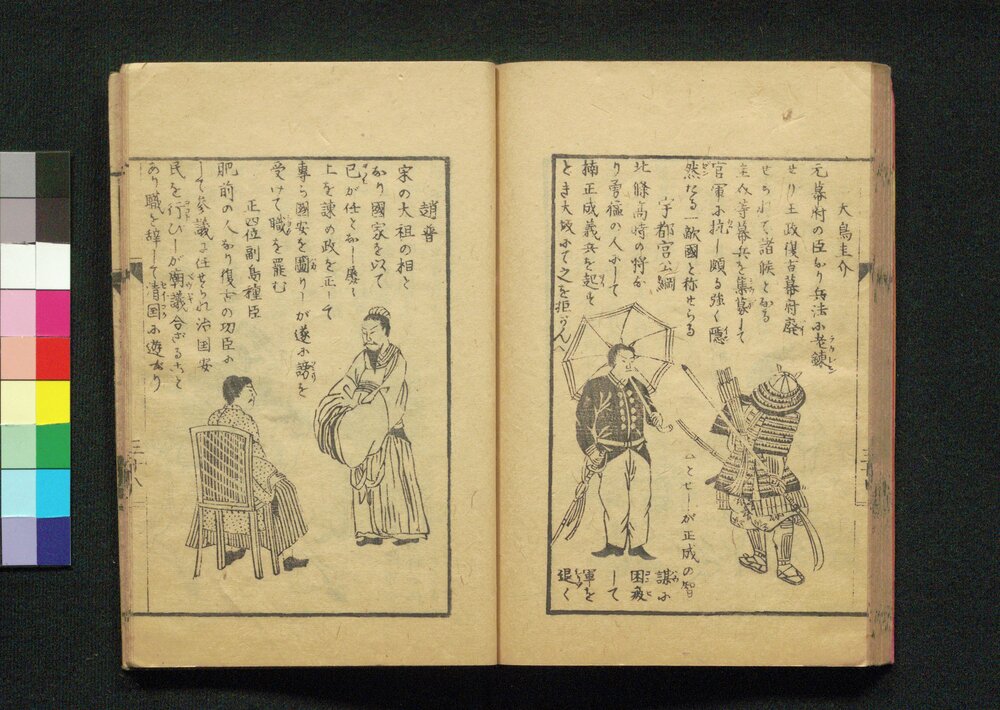 大鳥圭介
元幕府の臣なり兵法に老錬
せり王政復古幕府廃
せられて諸候となる
官軍に抗し頗る強く隠
然たる一敵國と称せらる
宇都宮公綱
北條高時の将な
り勇猛の人にして
楠正成義兵を起せし
とき大坂にて之を拒がん
とせしが正成の智
謀に
困疲
して
軍を
退く
趙普
宋の大祖の相と
なり國家を以て
己が任となし屡々
上を諫め政を正して
專ら國安を圖りしが遂に譖を
受けて職を罷む
正四位副島種臣
肥前の人なり復古の功臣に
して參議に任せられ治国安
民を行ひしが廟議合ざること
あり職を辞して清国に遊なり